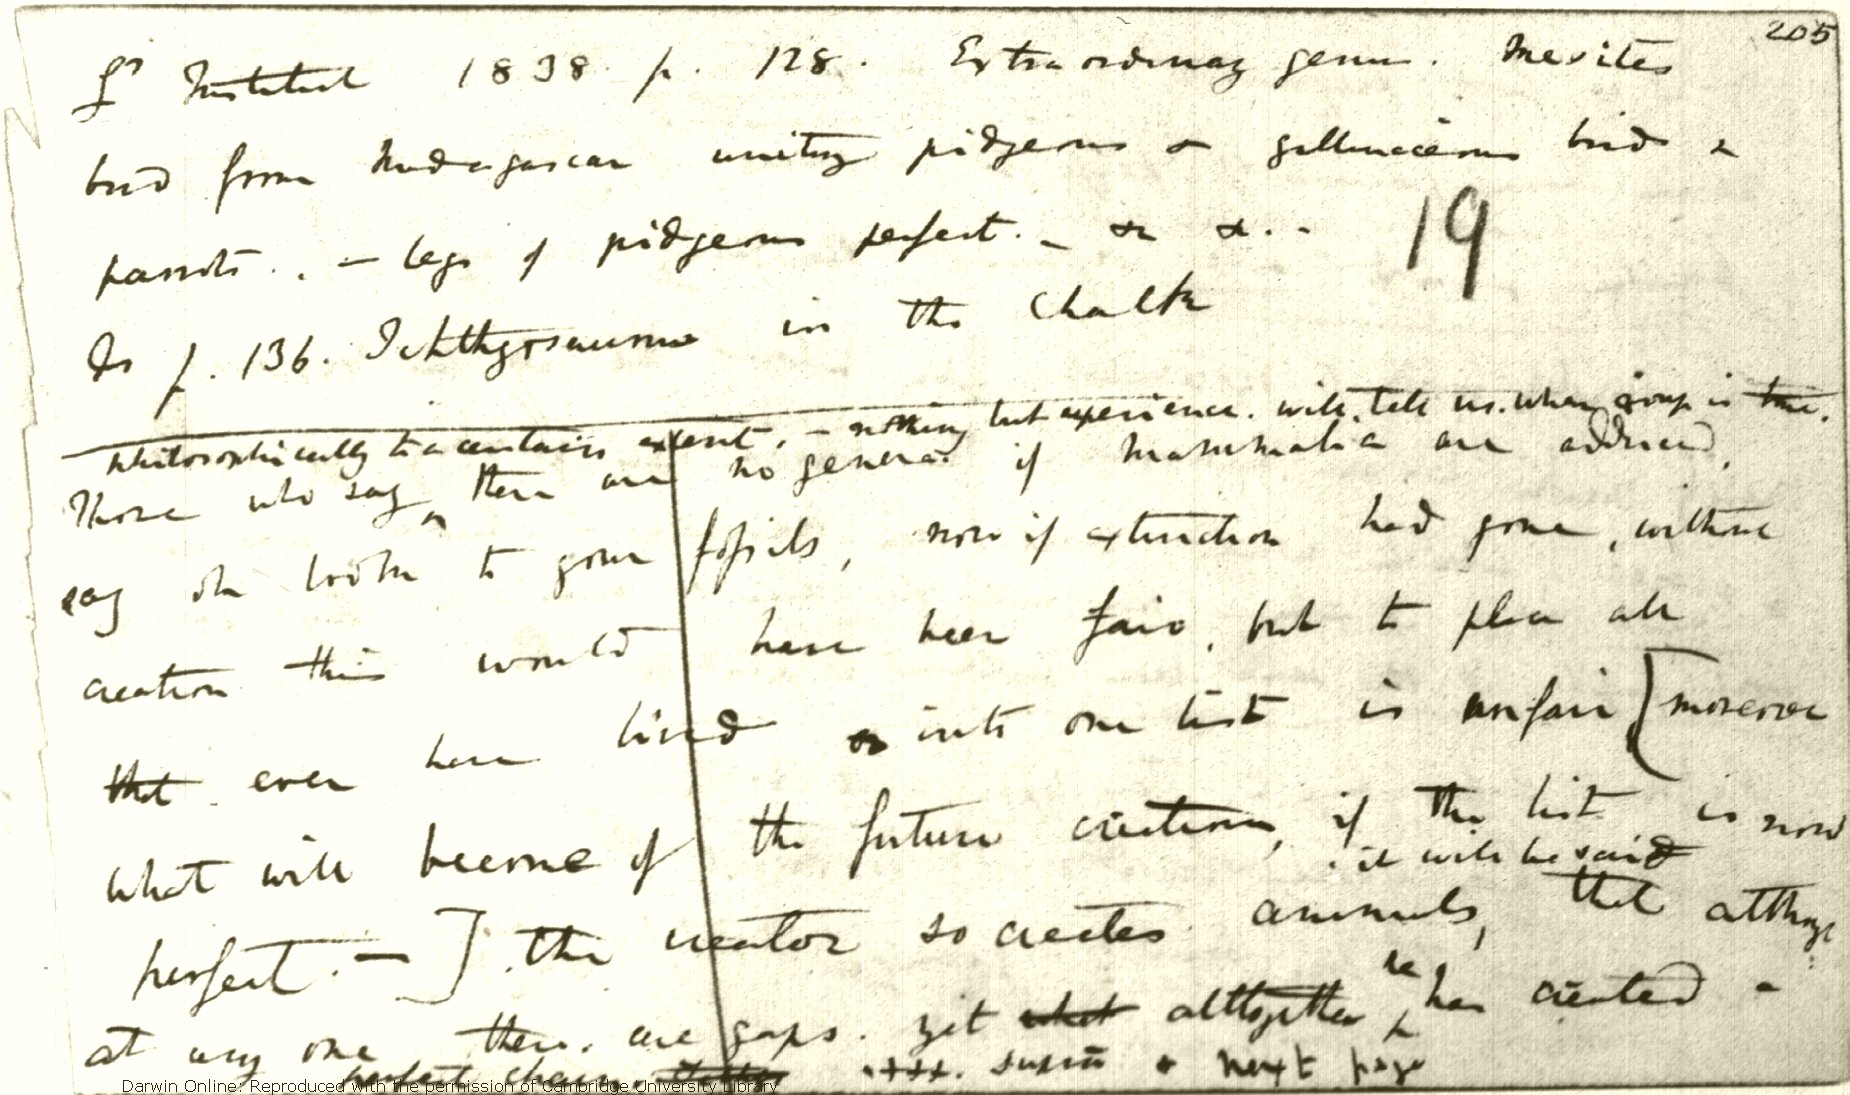 205
L' Institut 1838. p. 128. Extraordinary genus. Mesites
bird from Madagascar uniting pidgeons & gallinaceous birds &
parrots.. — legs of pidgeons perfect. — &c &c. -
19
Do p. 136. Ichthyosaurus in the Chalk
philosophically to a certain extent, — nothing but experience. will. tell us. when group is true.
Those who say ‸ there are no genera. if mammalia are adduced,
say oh look to your fossils, now if extinction had gone, without
creation this would have been fair, but to place all
that ever have lived into one list is unfair [moreover
what will become of the future creations, if the list is now
. it will be said
perfect. —] . the creator so creates animals, that although
at any one there. are gaps. yet what altogether ‸ he has created a
perfect chain supra & next page
Darwin Online: Reproduced with the permission of Cambridge University Library